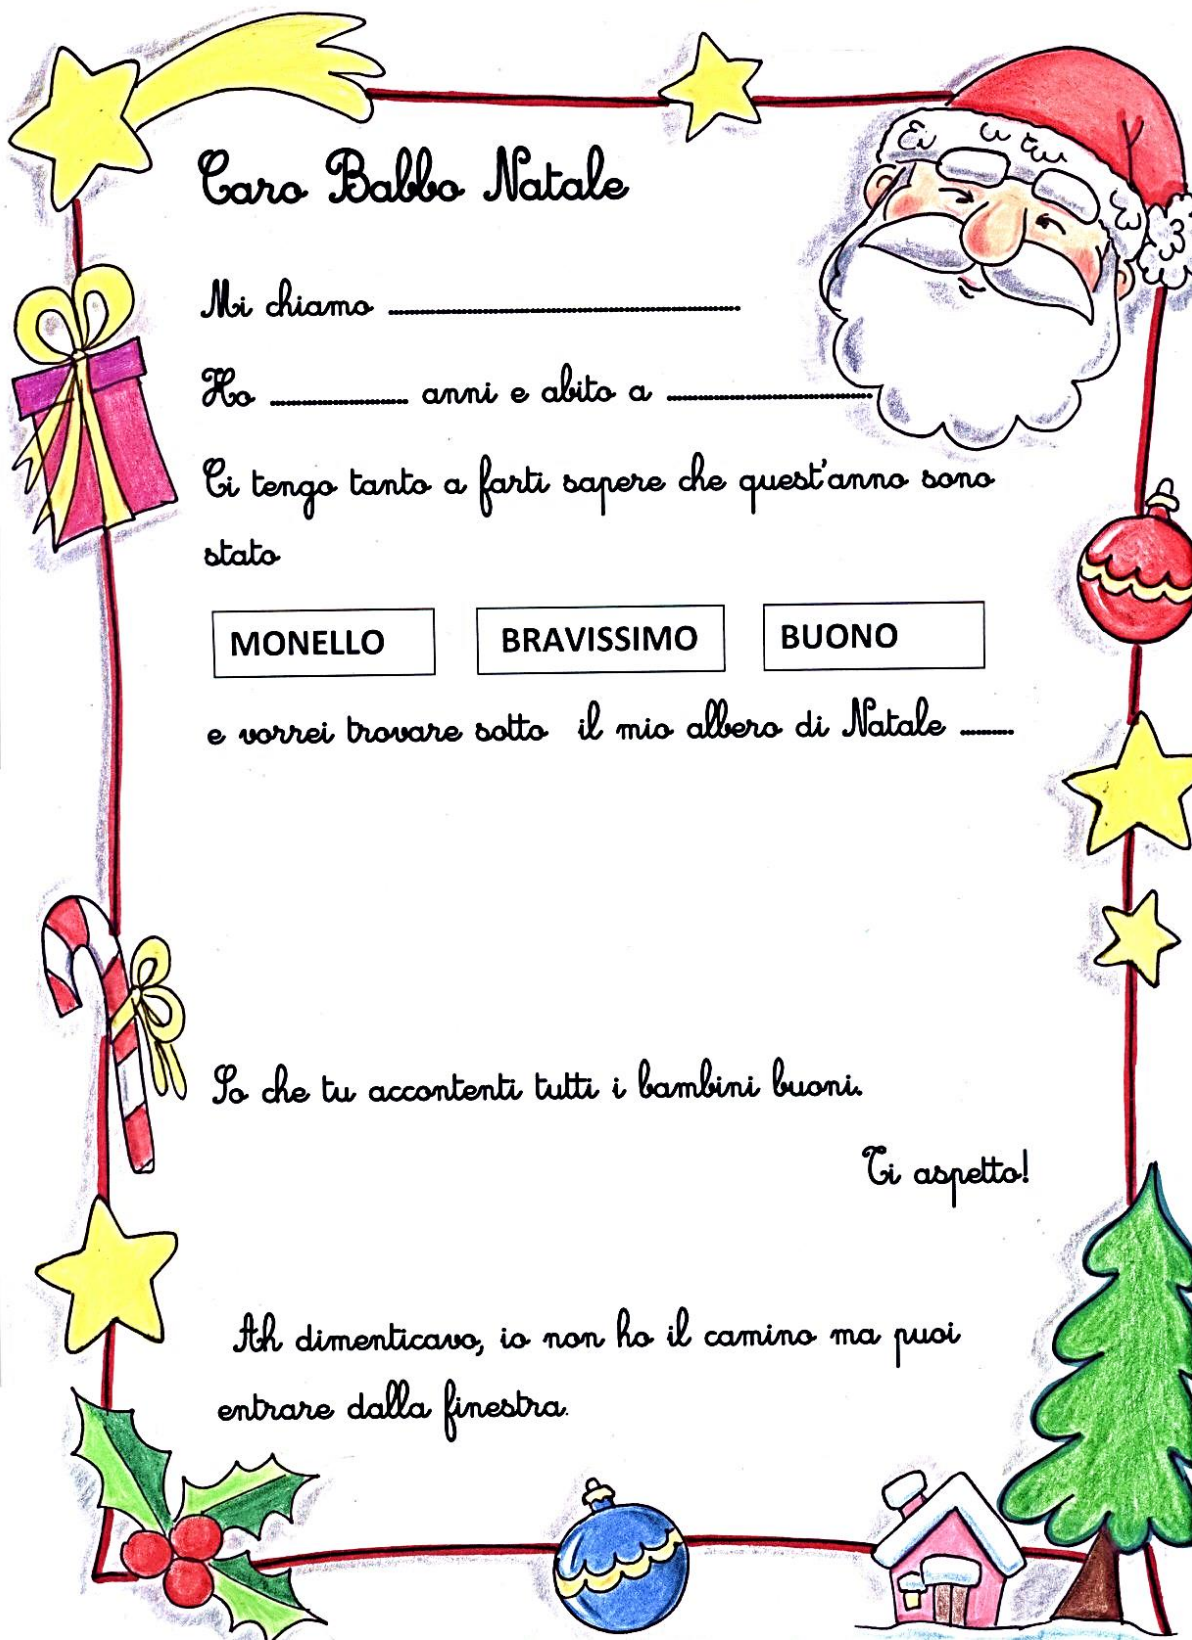 Caro Babbo Natale
Mi chiamo ........................................
Ho ................ anni e abito a ........................
Ci tengo tanto a farti sapere che quest'anno sono
stato
MONELLO BRAVISSIMO BUONO
e vorrei trovare sotto il mio albero di Natale ......
So che tu accontenti tutti i bambini buoni.
Ti aspetto!
Ah dimenticavo, io non ho il camino ma puoi
entrare dalla finestra.